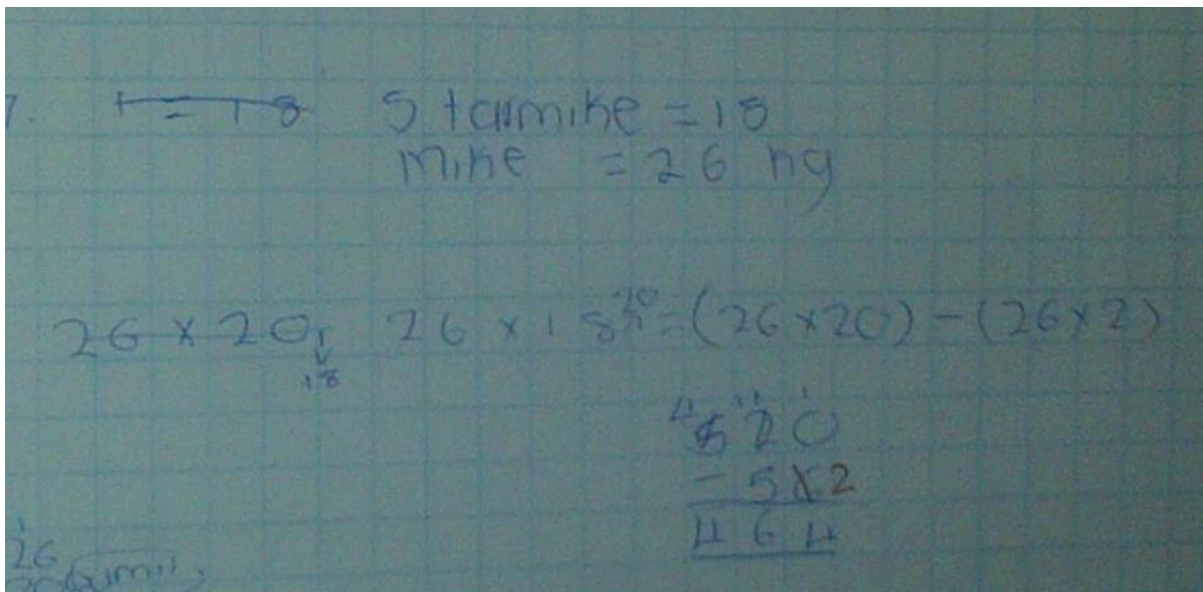 7. 1 = 18 Starmike = 18
mike = 26 kg
26 × 20 26 × 18 = (26×20) - (26×2)
18
520
- 52
464
26